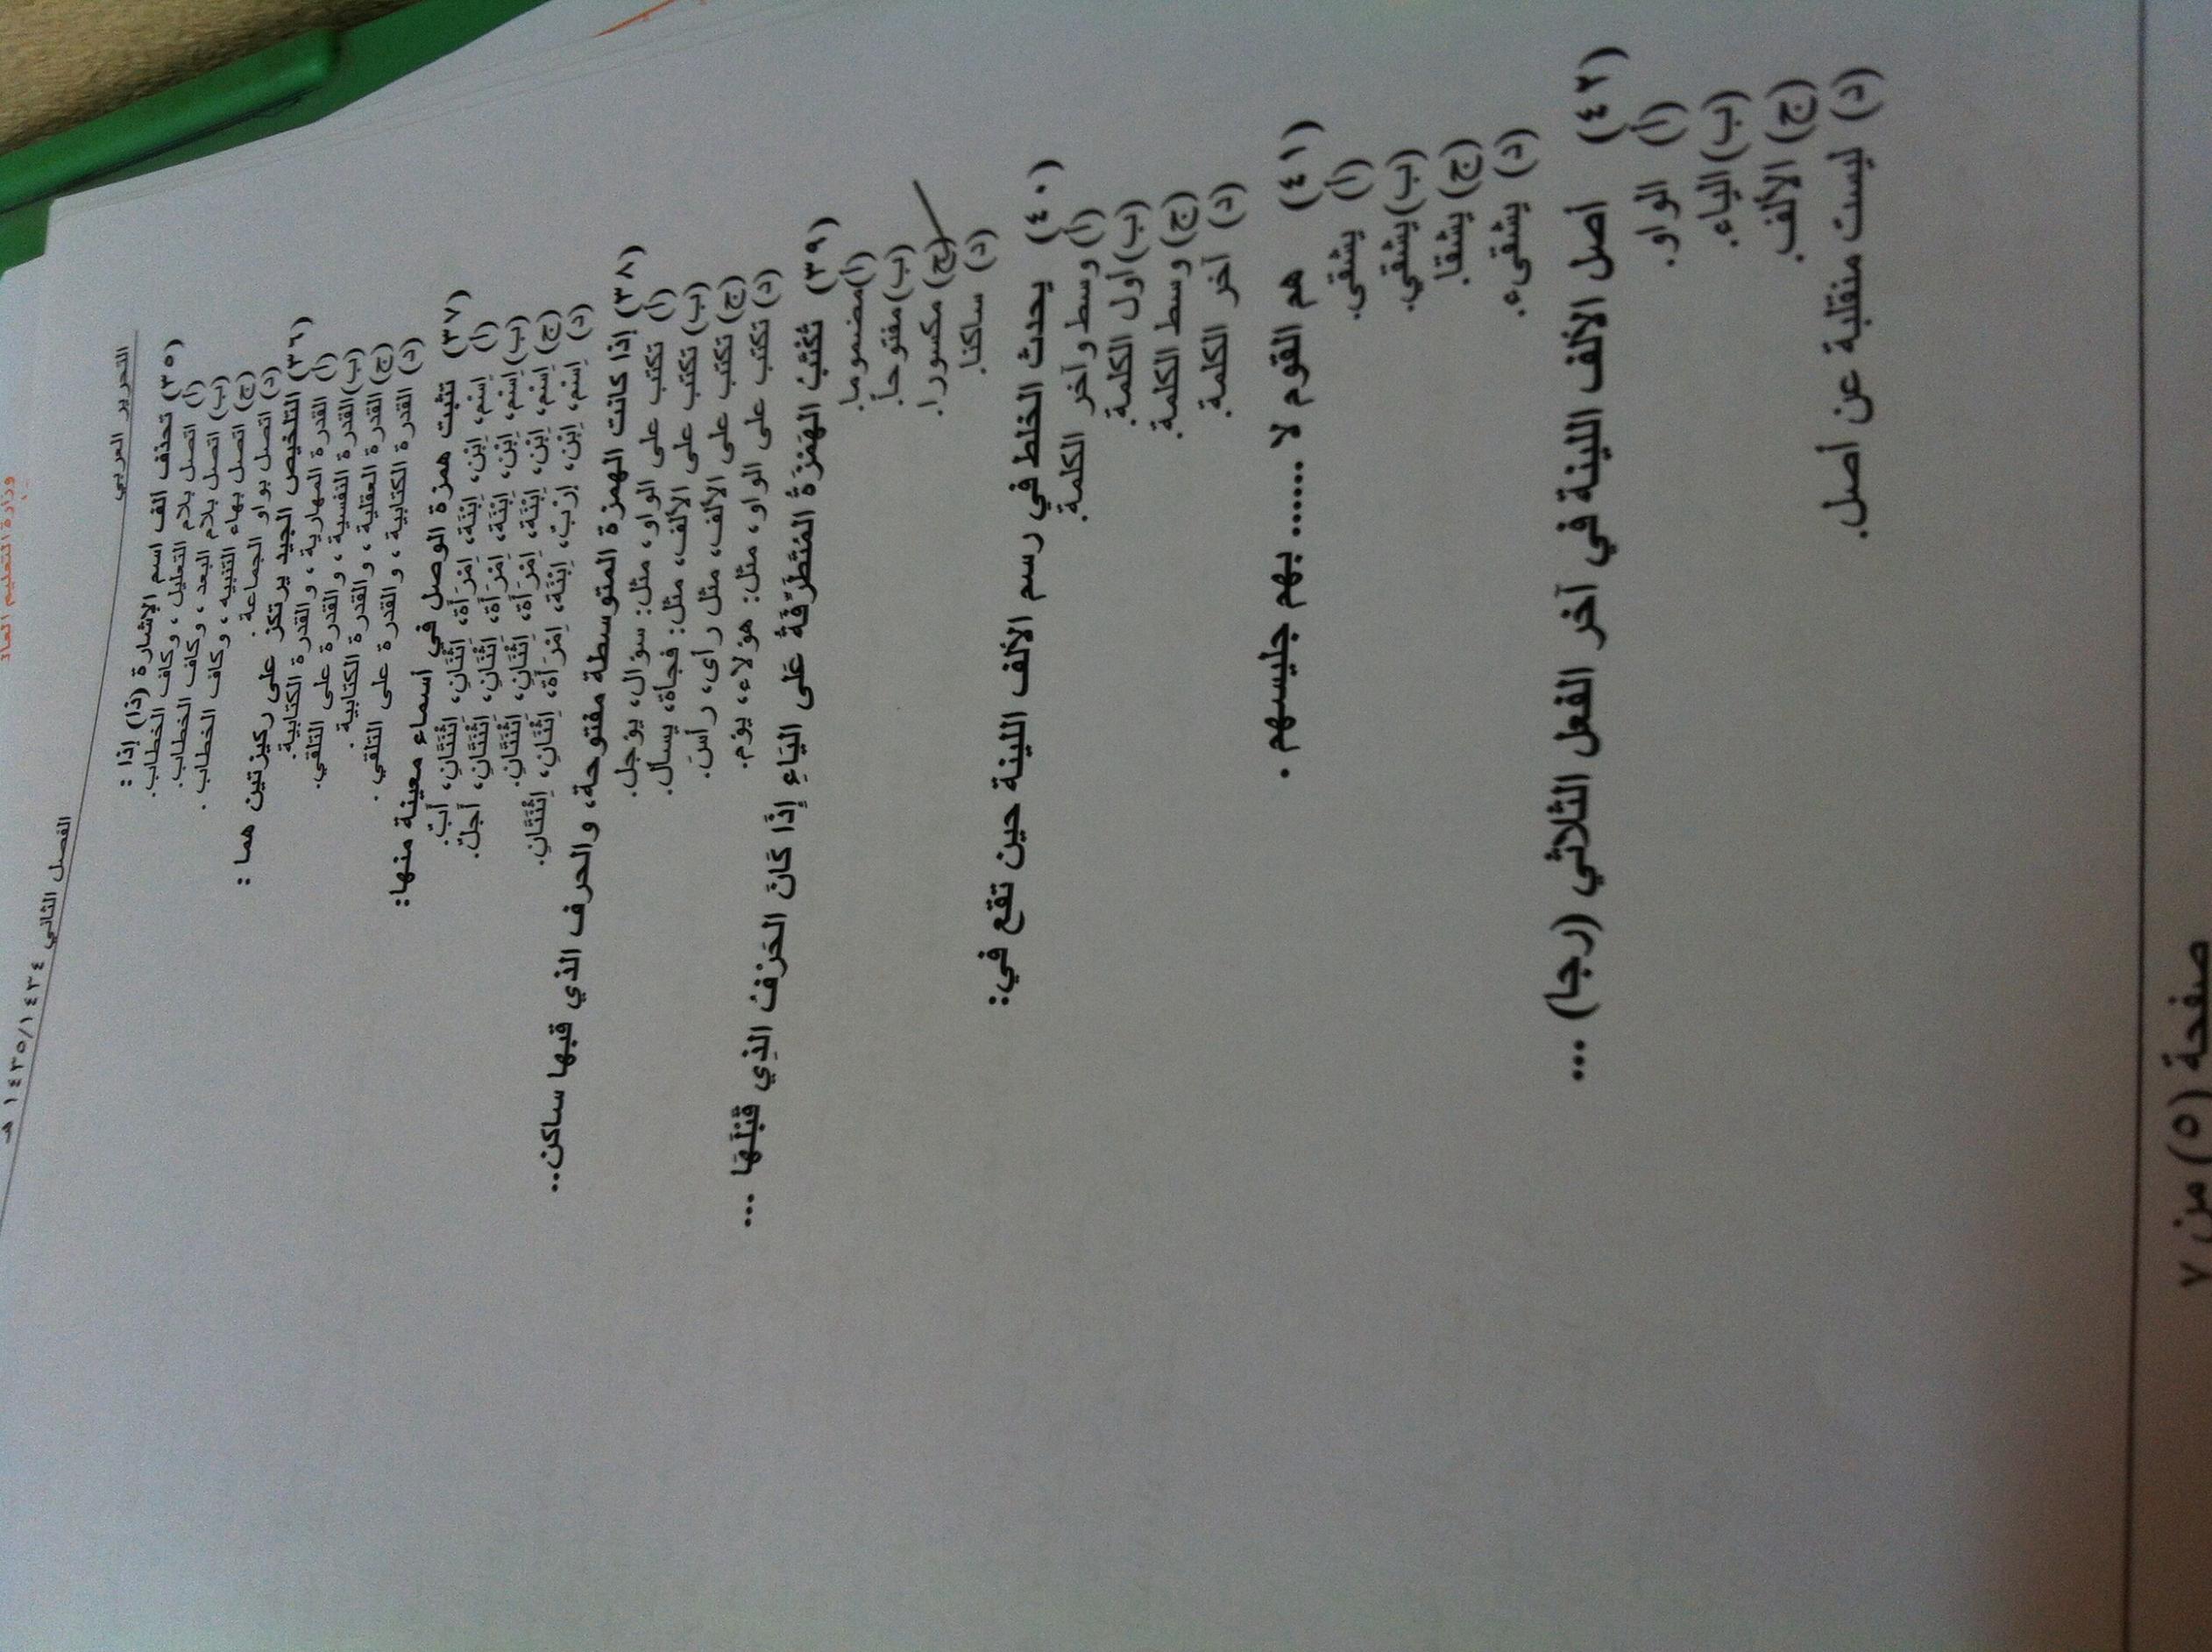 وزارة التعليم العالي
الفصل الثاني ١٤٣٥/١٤٣٤ هـ
التحرير العربي
(٣٥) تحذف ألف اسم الإشارة (ذا) إذا :
(أ) اتصل بلام التعليل ، وكاف الخطاب.
(ب) اتصل بلام البعد ، وكاف الخطاب.
(ج) اتصل بهاء التنبيه ، وكاف الخطاب .
(د) اتصل بواو الجماعة .
(٣٦) التلخيص الجيد يرتكز على ركيزتين هما :
(أ) القدرة المهارية ، والقدرة الكتابية.
(ب) القدرة النفسية ، والقدرة على التلقي.
(ج) القدرة العقلية ، والقدرة الكتابية .
(د) القدرة الكتابية ، والقدرة على التلقي .
(٣٧) تثبت همزة الوصل في أسماء معينة منها:
(أ) اِسْم، اِبْن، اِبْنَة، اِمْرَأَة، اِثْنَانِ، اثْنَتَانِ، أَبٌ.
(ب) اِسْم، اِبْن، اِبْنَة، اِمْرَأَة، اِثْنَانِ، اثْنَتَانِ، أجلّ.
(ج) اِسْم، اِبْن، اِبْنَة، اِمْرَأَة، اِثْنَانِ، اثْنَتَانِ.
(د) اِسْم، اِبْن، إرْبٌ، اِبْنَة، اِمْرَأَة، اِثْنَانِ، اِثْنَتَانِ.
(٣٨) إذا كانت الهمزة المتوسطة مفتوحة، والحرف الذي قبلها ساكن...
(أ) تكتب على الواو، مثل: سؤال، يؤجل.
(ب) تكتب على الألف، مثل: فجأة، يسأل.
(ج) تكتب على الألف، مثل رأى، رأسَ.
(د) تكتب على الواو، مثل: هؤلاء، يؤم.
(٣٩) تُكْتَبُ الهَمْزَةُ المُتَطَرِّفَةُ عَلَى اليَاءِ إِذَا كَانَ الحَرْفُ الَّذِي قَبْلَهَا ...
(أ) مضموما.
(ب) مفتوحاً.
(ج) مكسورا.
(د) ساكنا.
(٤٠) يحدث الخلط في رسم الألف اللينة حين تقع في:
(أ) وسط وآخر الكلمة.
(ب) أول الكلمة.
(ج) وسط الكلمة.
(د) آخر الكلمة.
(٤١) هم القوم لا ...... بهم جليسهم .
(أ) يشقى.
(ب) يشقي.
(ج) يشقا.
(د) يشقىء.
(٤٢) أصل الألف اللينة في آخر الفعل الثلاثي (رجا) ...
(أ) الواو.
(ب) الياء.
(ج) الألف.
(د) ليست منقلبة عن أصل.
صفحة (٥) من ٧